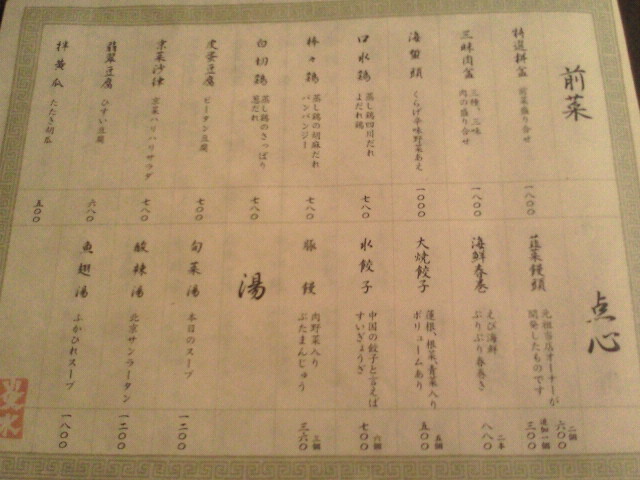 前菜
特選拼盆 前菜盛り合せ 一八〇〇
三味肉盆 三種、三味 肉の盛り合せ 一八〇〇
海蜇頭 くらげ辛味野菜あえ 一〇〇〇
口水鶏 蒸し鶏四川だれ よだれ鶏 七八〇
棒々鶏 蒸し鶏の胡麻だれ バンバンジー 七八〇
白切鶏 蒸し鶏のさっぱり 葱だれ 七八〇
皮蛋豆腐 ピータン豆腐 七〇〇
京菜沙律 京菜ハリハリサラダ 七八〇
翡翠豆腐 ひすい豆腐 六八〇
拌黄瓜 たたき胡瓜 五〇〇
点心
韮菜饅頭 元祖当店オーナーが 開発したものです 二個 六〇〇 追加一個 三〇〇
海鮮春巻 えび海鮮 ぷりぷり春巻き 二本 八八〇
大焼餃子 蓮根、根菜、青菜入り ボリュームあり 五個 五〇〇
水餃子 中国の餃子と言えば すいぎょうざ 六個 七〇〇
豚饅 肉野菜入り ぶたまんじゅう 二個 三六〇
湯
旬菜湯 本日のスープ 一二〇〇
酸辣湯 北京サンラータン 一二〇〇
魚翅湯 ふかひれスープ 一八〇〇